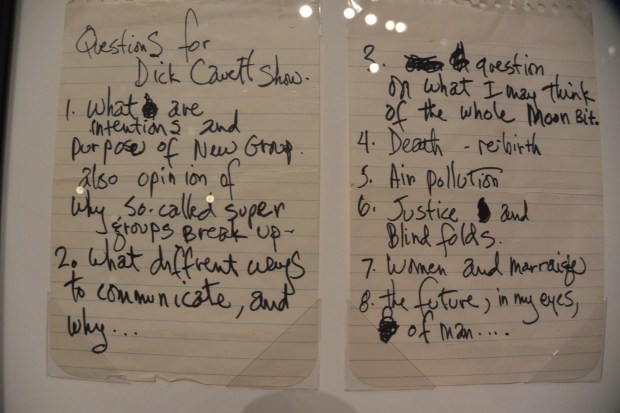 Questions for
Dick Cavett Show.
1. What are
intentions and
purpose of New Group.
also opinion of
Why So-called super
groups Break up-
2. What diffrent ways
to communicate, and
why...
3. question
on what I may think
of the whole Moon Bit.
4. Death - reibirth
5. Air Pollution
6. Justice and
Blind folds.
7. Women and marraige
8. the future, in my eyes,
of man....